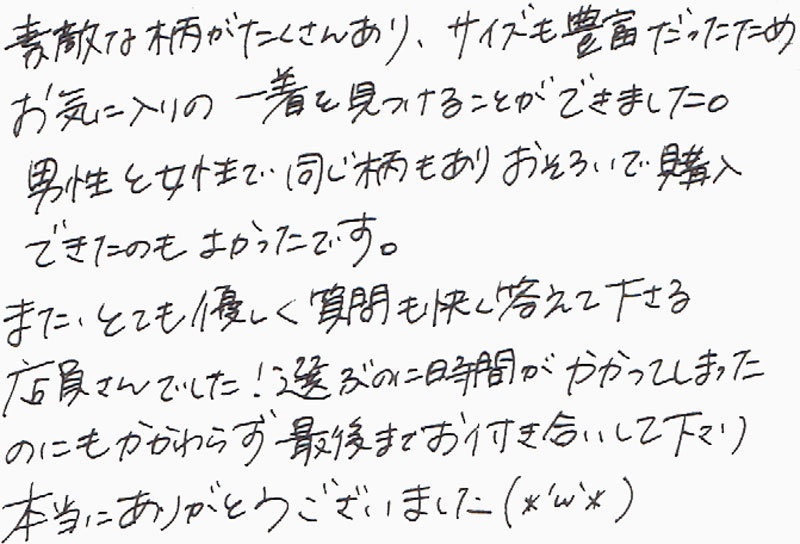 素敵な柄がたくさんあり、サイズも豊富だったため
お気に入りの一着を見つけることができました。
男性と女性で同じ柄もありおそろいで購入
できたのもよかったです。
また、とても優しく質問も快く答えて下さる
店員さんでした！選ぶのに時間がかかってしまった
のにもかかわらず最後までお付き合いして下さり
本当にありがとうございました(*'ω'*)